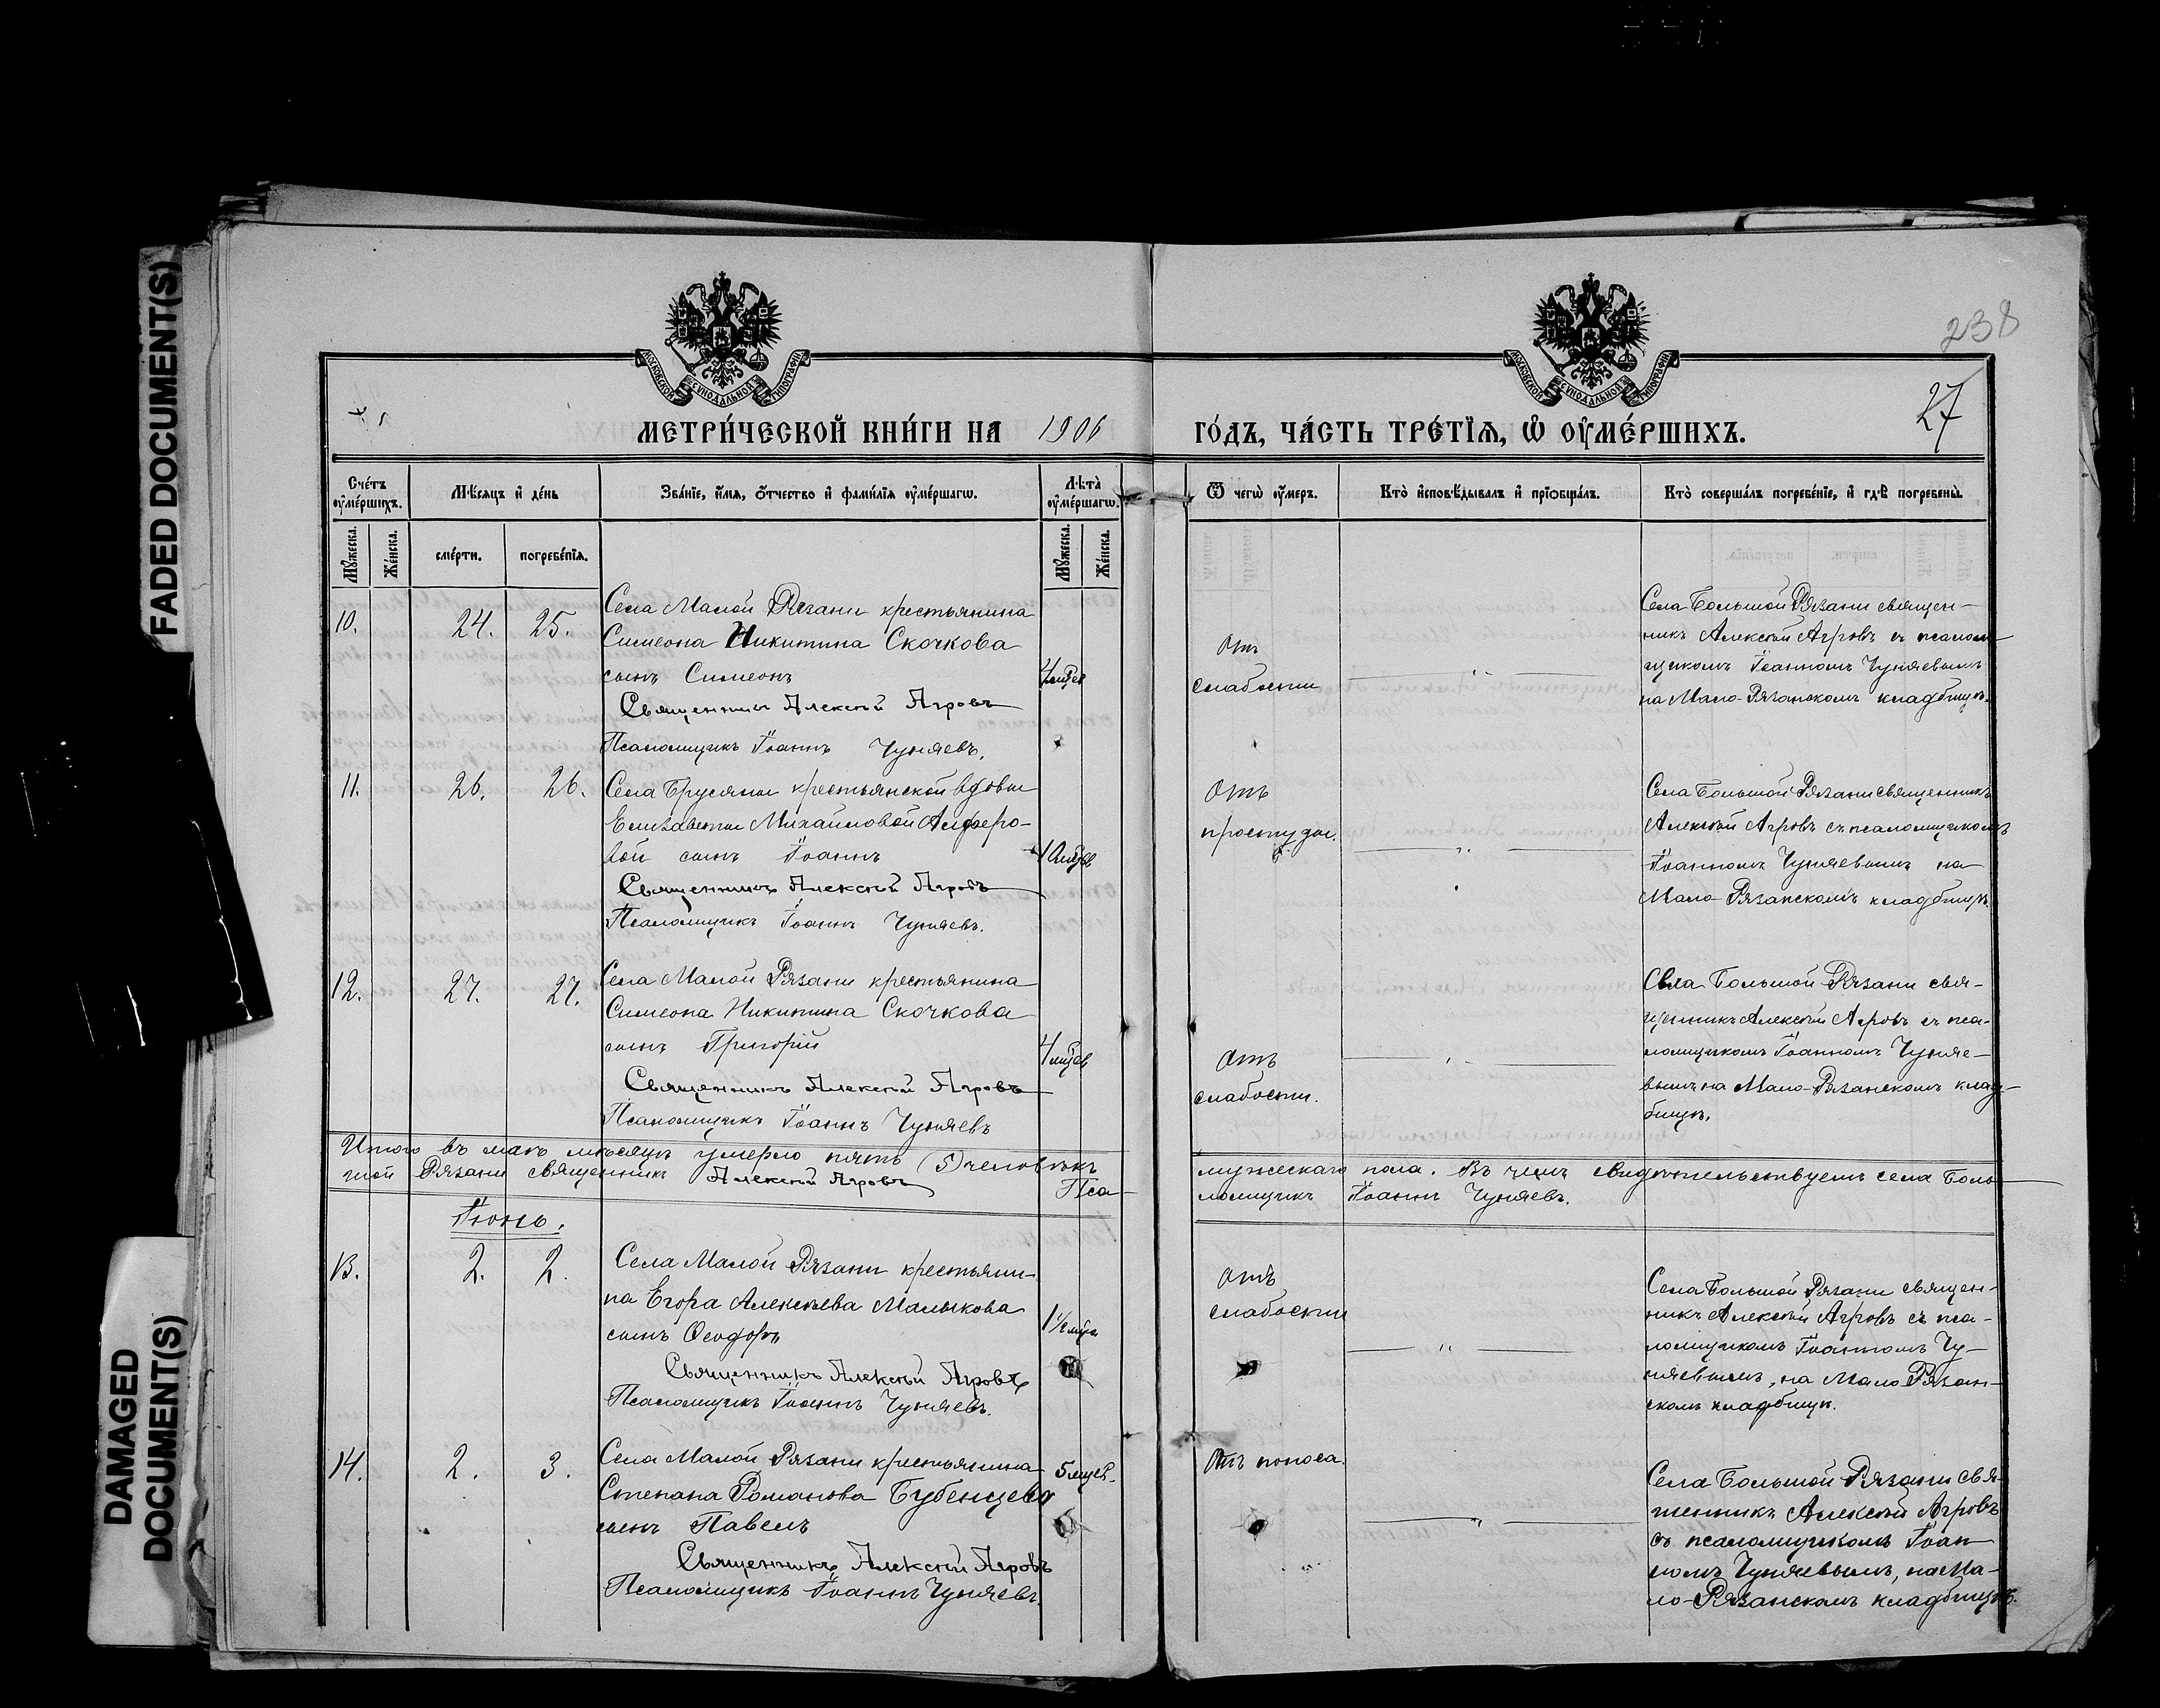 FADED DOCUMENT(S)
DAMAGED
DOCUMENT(S)
238
27
МОСКОВСКОЙ СѴНОДАЛЬНОЙ ТИПОГРАФІИ
МОСКОВСКОЙ СѴНОДАЛЬНОЙ ТИПОГРАФІИ
МЕТРИ́ЧЕСКОЙ КНИ́ГИ НА 1906 ГО́ДЪ, ЧА́СТЬ ТРЕ́ТІѦ, Ѡ҆ ОУ҆МЕ́РШИХЪ.
Сче́тъ оу҆ме́ршихъ.
Мѣ́сѧцъ и҆ де́нь
Зва́нїе, и҆́мѧ, ѻ҆́тчество и҆ фами́лїѧ оу҆ме́ршагѡ.
Лѣ̀та оу҆ме́ршагѡ.
Ѿ чегѡ̀ оу҆́меръ.
Кто̀ и҆сповѣ́дывалъ и҆ прїѡбща́лъ.
Кто̀ соверша́лъ погребе́нїе, и҆ гдѣ̀ погребены̀.
Мꙋ́жеска.
Же́нска.
сме́рти.
погребе́нїѧ.
Мꙋ́жеска.
Же́нска.
10.
24.
25.
Села Малой Рязани крестьянина
Симеона Никитина Скочкова
сынъ Симеонъ
Священникъ Алексій Агровъ
Псаломщикъ Іоаннъ Чуняевъ.
Отъ
слабости
Села Большой Рязани священ-
никъ Алексѣй Агровъ съ псалом-
щикомъ Іоанномъ Чуняевымъ
на Мало-Рязанскомъ кладбищѣ.
11.
26.
26.
Села Брусяны крестьянской вдовы
Елизаветы Михайловой Алферо-
вой сынъ Іоаннъ
Священникъ Алексій Агровъ
Псаломщикъ Іоаннъ Чуняевъ.
Отъ
простуды.
Села Большой Рязани священникъ
Алексѣй Агровъ съ псаломщикомъ
Іоанномъ Чуняевымъ на
Мало-Рязанскомъ кладбищѣ.
12.
27.
27.
Села Малой Рязани крестьянина
Симеона Никитина Скочкова
сынъ Григорій
4 мѣс
Священникъ Алексій Агровъ
Псаломщикъ Іоаннъ Чуняевъ
Отъ
слабости.
Села Большой Рязани свя-
щенникъ Алексѣй Агровъ съ пса-
ломщикомъ Іоанномъ Чуняе-
вымъ на Мало-Рязанскомъ клад-
бищѣ.
Итого въ маѣ мѣсяцѣ умерло пять (5) человѣкъ мужескаго пола. Въ чемъ свидѣтельствуемъ села Боль-
шой Рязани священникъ Алексій Агровъ Пса-
ломщикъ Іоаннъ Чуняевъ.
Іюнь.
13.
2.
2.
Села Малой Рязани крестьяни-
на Егора Алексѣева Малыкова
сынъ Ѳеодоръ
1½ мѣс
Священникъ Алексѣй Агровъ
Псаломщикъ Іоаннъ Чуняевъ.
Отъ
слабости
Села Большой Рязани священ-
никъ Алексѣй Агровъ съ пса-
ломщикомъ Іоанномъ Чу-
няевымъ, на Мало Рязан-
скомъ кладбищѣ.
14.
2.
3.
Села Малой Рязани крестьянина
Степана Романова Бубенцева
сынъ Павелъ
5 мѣс
Священникъ Алексій Агровъ
Псаломщикъ Іоаннъ Чуняевъ.
Отъ поноса.
Села Большой Рязани свя-
щенникъ Алексѣй Агровъ
съ псаломщикомъ Іоан-
номъ Чуняевымъ, на Ма-
ло-Рязанскомъ кладбищѣ.